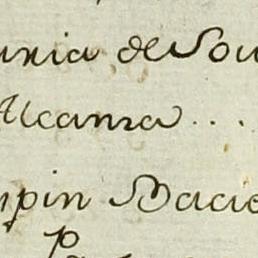 uria de Sou
Alcanra...
pin Bacie
p